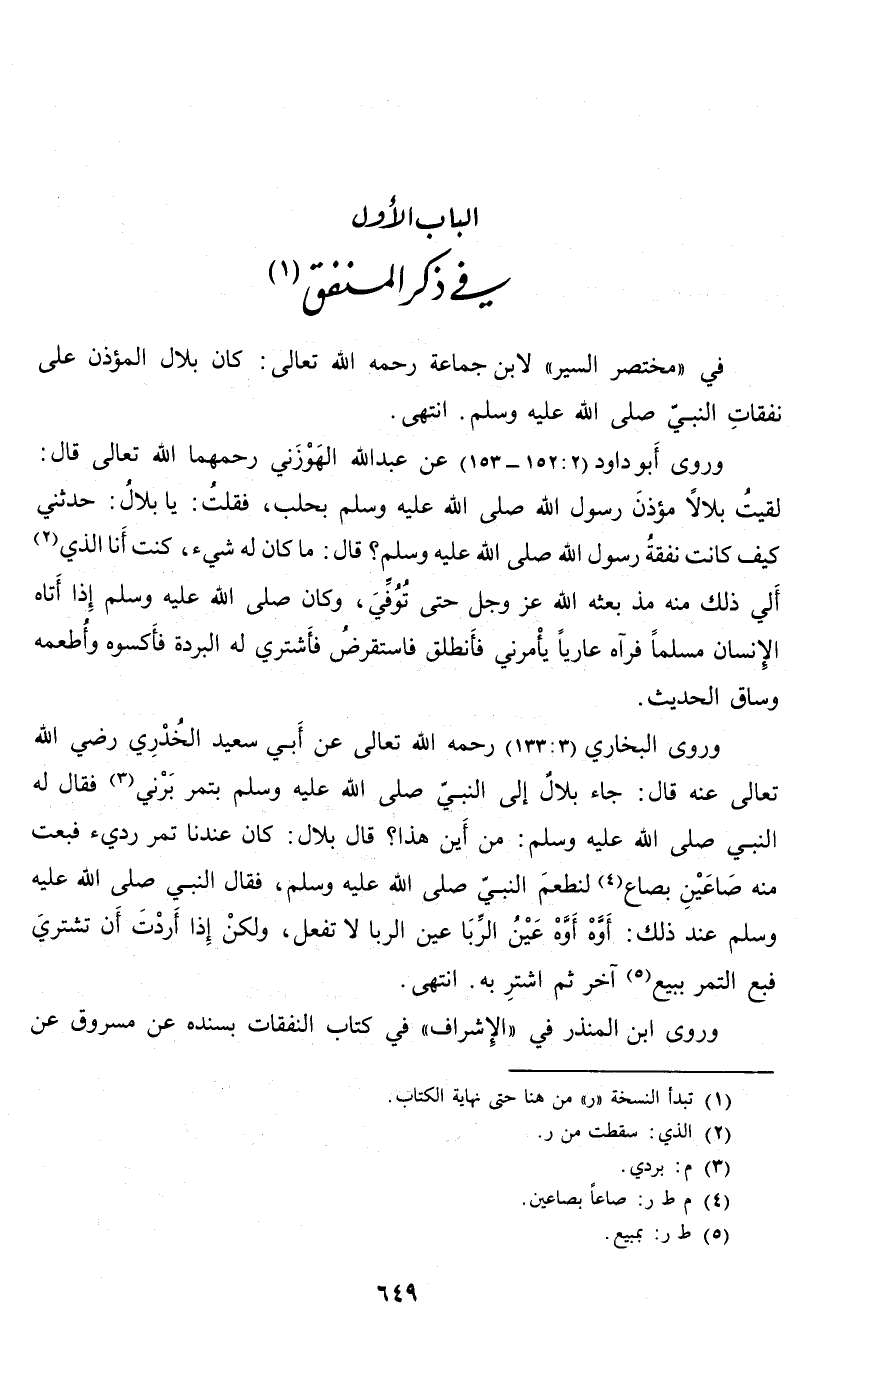 الباب الأول
في ذكر المنفق (١)
في «مختصر السير» لابن جماعة رحمه الله تعالى: كان بلال المؤذن على
نفقاتِ النبيّ صلى الله عليه وسلم. انتهى.
وروى أبو داود (٢:١٥٢ – ١٥٣) عن عبدالله الهَوْزَني رحمهما الله تعالى قال:
لقيتُ بلالًا مؤذنَ رسول الله صلى الله عليه وسلم بحلب، فقلتُ: يا بلالُ: حدثني
كيف كانت نفقةُ رسول الله صلى الله عليه وسلم؟ قال: ما كان له شيء، كنت أنا الذي(٢)
أَلي ذلك منه مذ بعثه الله عز وجل حتى تُوُفِّيَ، وكان صلى الله عليه وسلم إذا أتاه
الإنسان مسلماً فرآه عارياً يأْمرني فأنطلق فاستقرضُ فأشتري له البردة فأكسوه وأُطعمه
وساق الحديث.
وروى البخاري (٣:١٣٣) رحمه الله تعالى عن أبي سعيد الخُدْرِي رضي الله
تعالى عنه قال: جاء بلالٌ إلى النبيّ صلى الله عليه وسلم بتمر بَرْني(٣) فقال له
النبي صلى الله عليه وسلم: من أين هذا؟ قال بلال: كان عندنا تمر رديء فبعت
منه صَاعَيْنِ بصاع(٤) لنطعمَ النبيّ صلى الله عليه وسلم، فقال النبي صلى الله عليه
وسلم عند ذلك: أَوَّهْ أَوَّهْ عَيْنُ الرِّبَا عين الربا لا تفعل، ولكنْ إذا أَردْتَ أَن تشتريَ
فبع التمر ببيع(٥) آخر ثم اشترِ به. انتهى.
وروى ابن المنذر في «الإشراف» في كتاب النفقات بسنده عن مسروق عن
(١) تبدأ النسخة «ر» من هنا حتى نهاية الكتاب.
(٢) الذي: سقطت من ر.
(٣) م: بردي.
(٤) م ط ر: صاعاً بصاعين.
(٥) ط ر: بمبيع.
٦٤٩